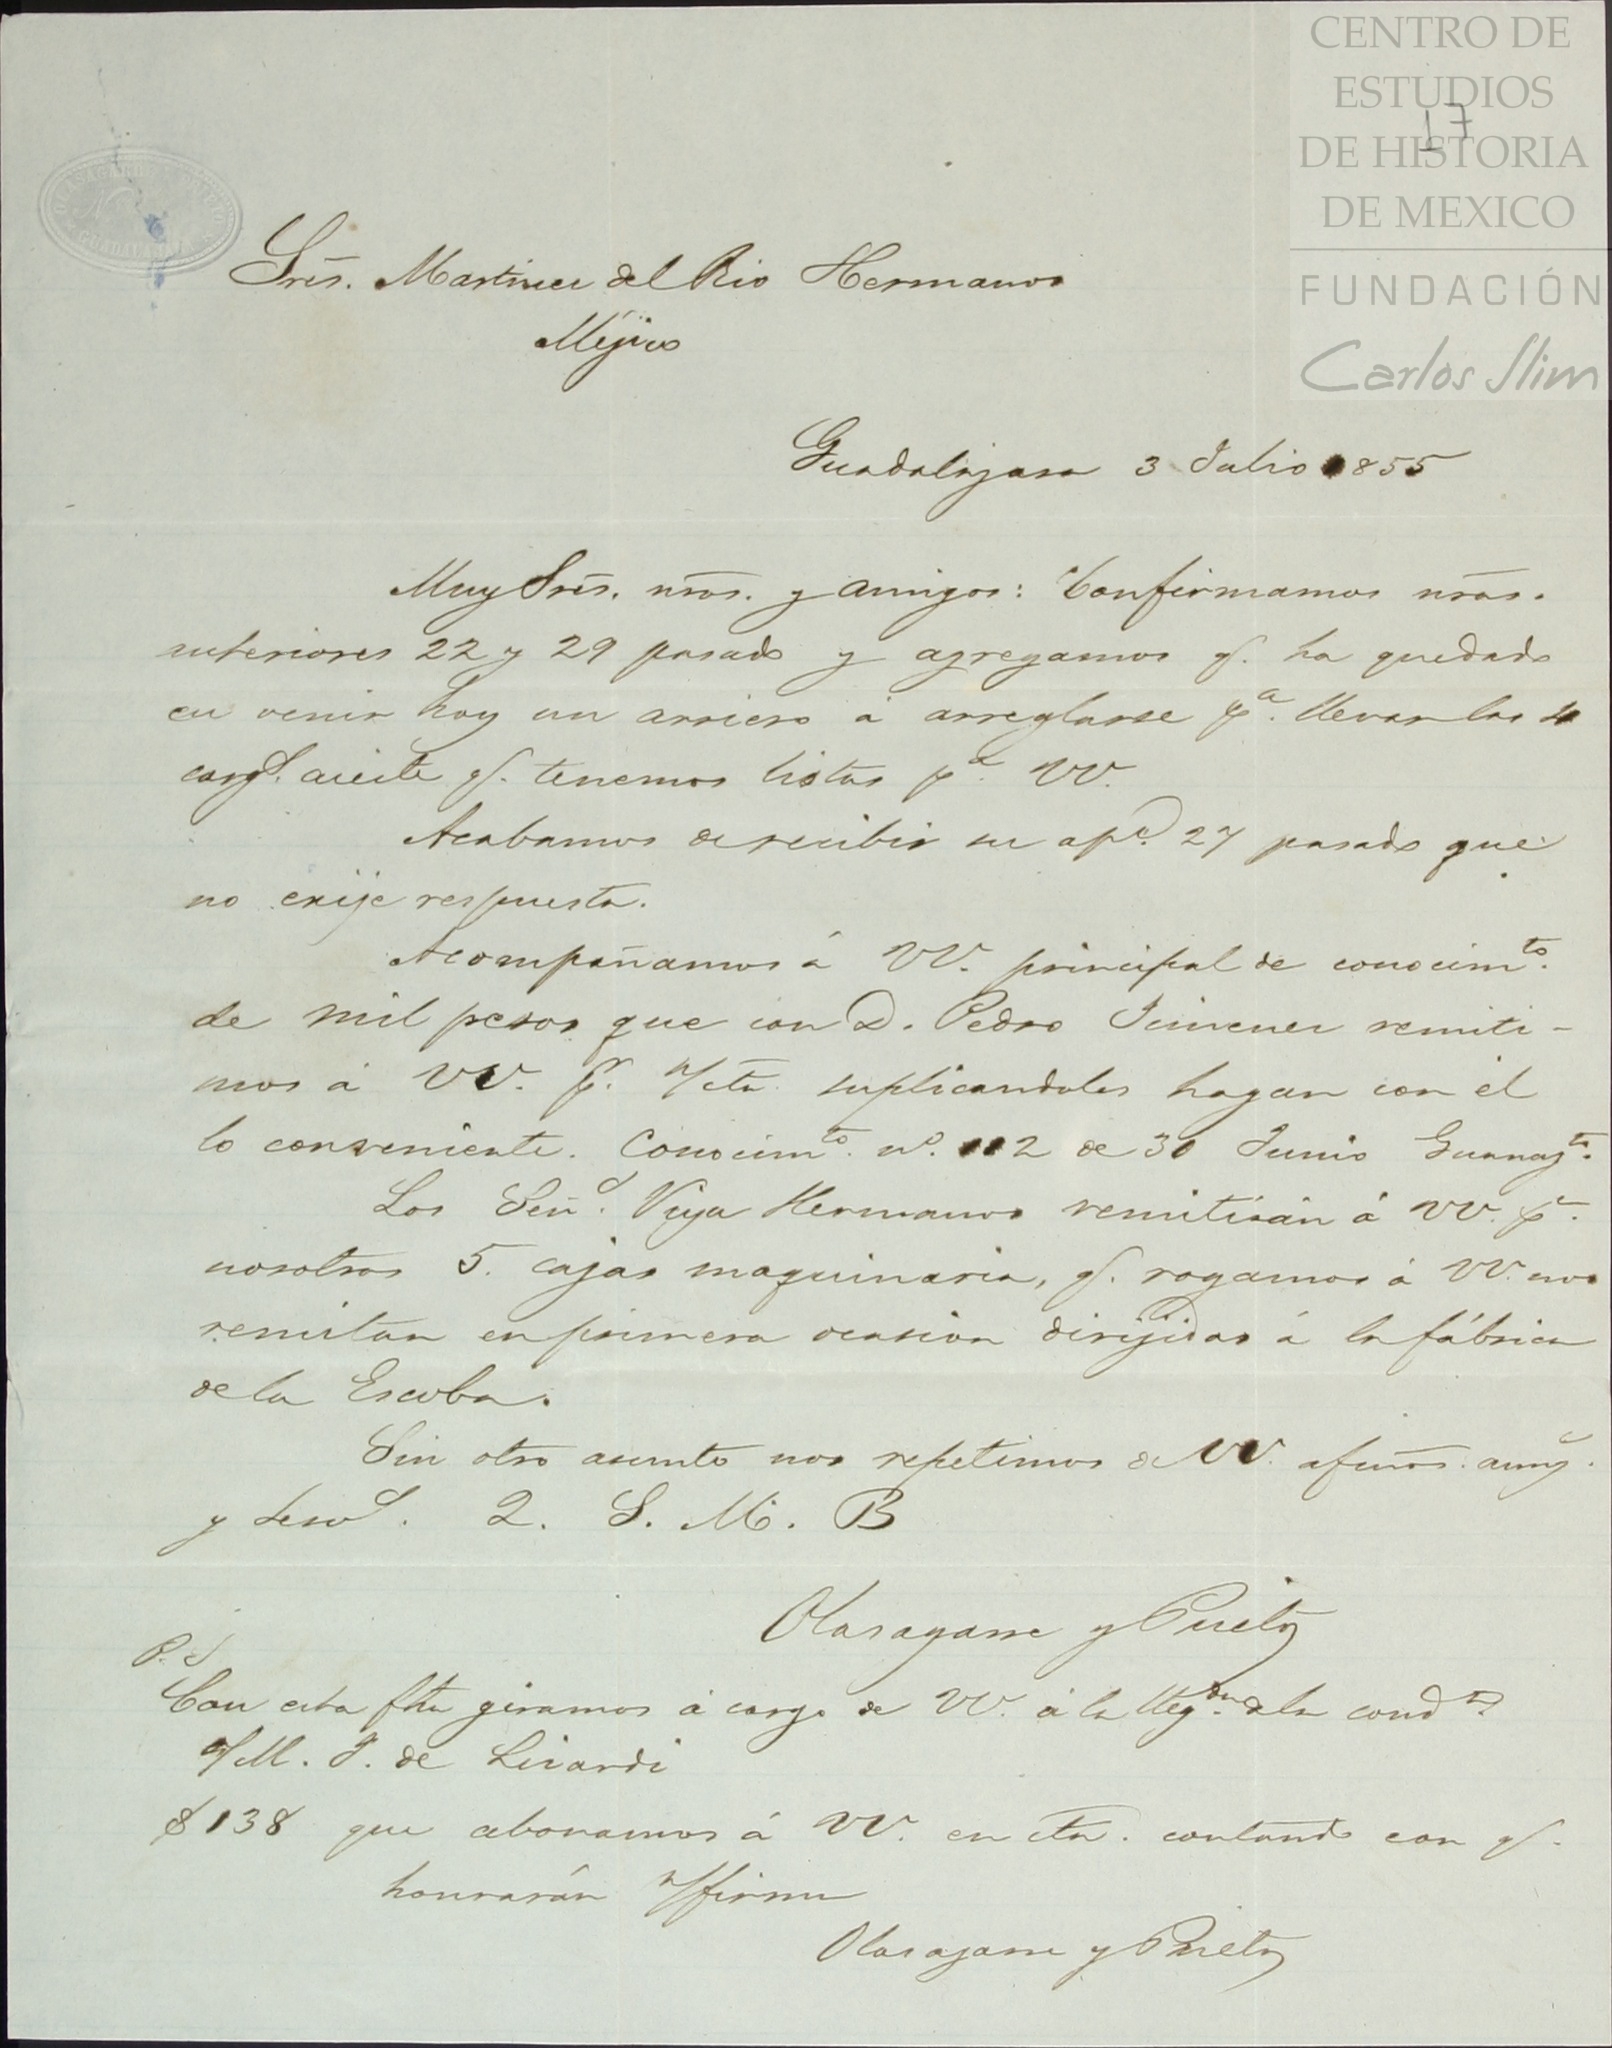 CENTRO DE
ESTUDIOS
DE HISTORIA
DE MEXICO
FUNDACIÓN
Carlos Slim
17
Sres. Martinez del Rio Hermanos
Méjico
Guadalajara 3 Julio 1855
Muy Sres. nros. y amigos: Confirmamos nras.
anteriores 22 y 29 pasado y agregamos q. ha quedado
en venir hoy un arriero á arreglarse pa. llevar las 4
cargs. aceite q. tenemos listas pa. VV.
Acabamos de recibir su apda. 27 pasado que
no exije respuesta.
Acompañamos á VV. principal de conocimto.
de mil pesos que con D. Pedro Jimenez remiti-
mos á VV. pr. n/cta. suplicandoles hagan con él
lo conveniente. Conocimto. no. 112 de 30 Junio Guanajto.
Los Señs. Viya Hermanos remitirán á VV. pr.
nosotros 5. cajas maquinaria, q. rogamos á VV. nos
remitan en primera ocasion dirijidas á la fábrica
de la Escoba.
Sin otro asunto nos repetimos de VV. afmos. amigs.
y servs. Q. S. M. B
Olasagarre y Prieto
P. S
Con esta fha giramos á cargo de VV. á la llegda. de la condta
o/ M. J. de Lizardi
$138 que abonamos á VV. en cta. contando con q.
honrarán n/firma
Olasagarre y Prieto